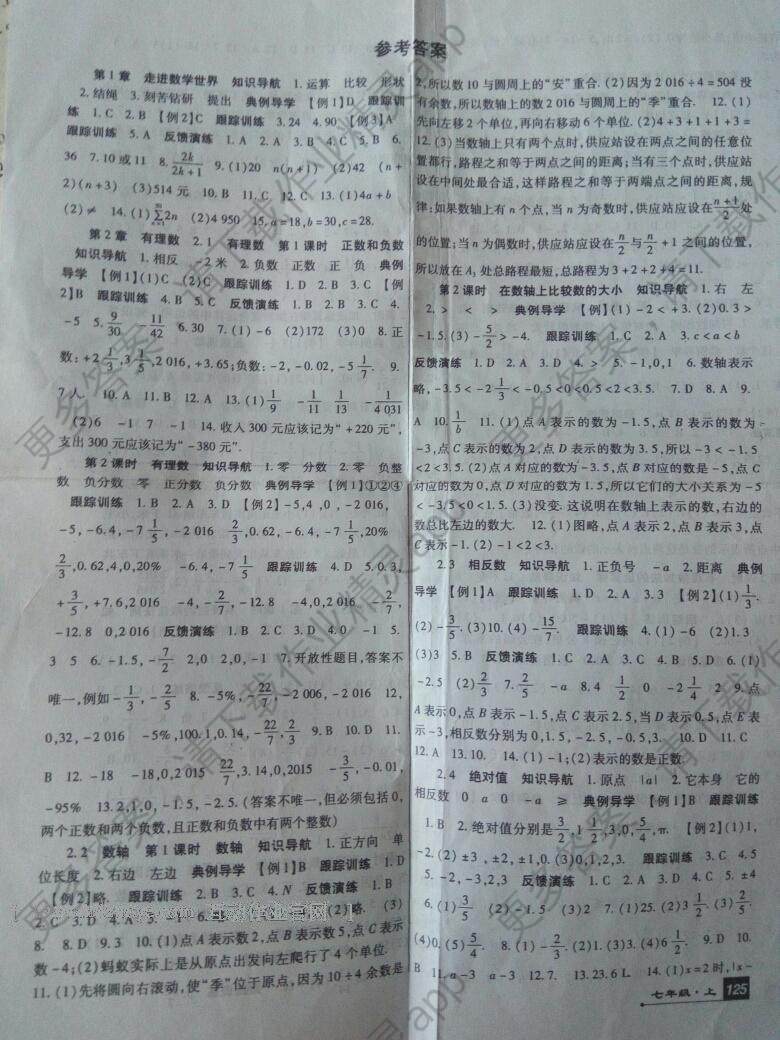 参考答案
第1章 走进数学世界 知识导航 1.运算 比较 形状
2.结绳 3.刻苦钻研 提出 典例导学 【例1】D 跟踪训
练 1.C 2.B 【例2】C 跟踪训练 3.24 4.90 【例3】A
跟踪训练 5.A 反馈演练 1.A 2.A 3.B 4.C 5.B 6.
36 7.10或11 8.2k/(2k+1) 9.(1)20 n(n+1) (2)42 (n+
2)(n+3) (3)514元 10.B 11.C 12.C 13.(1)4a+b
(2)≠ 14.(1) 2n (2)4 950 15.a=18,b=30,c=28.
第2章 有理数 2.1 有理数 第1课时 正数和负数
知识导航 1.相反 -2米 2.负数 正数 正 负 典例
导学 【例1】(1)C (2)C 跟踪训练 1.D 2.B 3.C 【例
2】B 跟踪训练 4.B 5.C 反馈演练 1.B 2.B 3.C 4.
-5 5.9/30 -11/42 6.30 7.(1)-6 (2)172 (3)0 8.正
数:+2 1/3,3 1/5,2 016,+3.65;负数:-2,-0.02,-5 1/7. 9.
7人 10.A 11.B 12.A 13.(1)1/9 -1/11 1/13 -1/4 031
(2)6 -1 7 -1 14.收入300元应该记为“+220元”,
支出300元应该记为“-380元”.
第2课时 有理数 知识导航 1.零 分数 2.零 负整
数 负分数 零 正分数 负分数 典例导学 【例1】①②④
跟踪训练 1.B 2.A 3.D 【例2】-5,4,0,-2 016,
-5,-6.4,-7 1/5,-2 016 2/3,0.62,-6.4,-7 1/5,20%
2/3,0.62,4,0,20% -6.4,-7 1/5 跟踪训练 4.D 5.0.3,
+3/5,+7.6,2 016 -4,-2/7,-12.8 -4,0,2 016 -2/7,
-12.8 0,2 016 反馈演练 1.B 2.C 3.D 4.0 -1 5.
3 5 6.-1.5,-7/2 2,0 2,0,-1 7.开放性题目,答案不
唯一,例如-1/3,-2/5 8.-5%,-22/7,-2 006,-2 016 12,
0,32,-2 016 -5%,100.1,0.14,-22/7,2/3 9.B 10.D 11.
B 12.-18 -18,0,2 015 22/7,3.14,0,2015 -3/5,-0.01,
-95% 13.2,1,0,-1.5,-2.5.(答案不唯一,但必须包括0,
两个正数和两个负数,且正数和负数中有两个整数)
2.2 数轴 第1课时 数轴 知识导航 1.正方向 单
位长度 2.右边 左边 典例导学 【例1】B 跟踪训练 1.B
【例2】略. 跟踪训练 2.B 3.C 4.N 反馈演练 1.B
8. 8.D 9.3 10.(1)点A表示数2,点B表示数5,点C表示
数-4;(2)蚂蚁实际上是从原点出发向左爬行了4个单位.
11.(1)先将圆向右滚动,使“季”位于原点,因为10÷4余数是
2,所以数10与圆周上的“安”重合.(2)因为2 016÷4=504没
有余数,所以数轴上的数2 016与圆周上的“季”重合. 12.(1)
先向左移2个单位,再向右移动6个单位.(2)4+3+1+1+3=
12.(3)当数轴上只有两个点时,供应站设在两点之间的任意位
置都行,路程之和等于两点之间的距离;当有三个点时,供应站
设在中间处最合适,这样路程之和等于两端点之间的距离,规
律:如果数轴上有n个点,当n为奇数时,供应站应设在(n+1)/2处
的位置;当n为偶数时,供应站应设在n/2与n/2+1之间的位置,
所以放在A₃处总路程最短,总路程为3+2+2+4=11.
第2课时 在数轴上比较数的大小 知识导航 1.右 左
2.> < > 典例导学 【例】(1)-2<+3.(2)0.3>
-1.5.(3)-5/2>-4. 跟踪训练 1.D 2.A 3.c<a<b
反馈演练 1.D 2.A 3.D 4.> 5.-1,0,1 6.数轴表示
略,-3.5<-2 1/3<-0.5<0<0.5<2<3.5. 7.D 8.A 9.
A 10.1/b 11.(1)点A表示的数为-1.5,点B表示的数为
-3,点C表示的数为2,点D表示的数为3.5,所以-3<-1.5
<2<3.5.(2)点A对应的数为-3.5,点B对应的数是-5,点C
对应的数为0,点D对应的数为1.5,所以它们的大小关系为-5
<-3.5<0<1.5.(3)没变.这说明在数轴上表示的数,右边的
数总比左边的数大. 12.(1)图略,点A表示2,点B表示3,点
C表示-1.(2)-1<2<3.
2.3 相反数 知识导航 1.正负号 -a 2.距离 典例
导学 【例1】A 跟踪训练 1.D 2.A 3.3 【例2】(1)1/3.
(2)-3/5.(3)10.(4)-15/7. 跟踪训练 4.(1)-6 (2)1.3
(3)3 5.B 反馈演练 1.C 2.A 3.C 4.B 5.D 6.(1)
-2.5 (2)2/3 7.2/5 -a 8.4 1/2 0 -2 1/4 2 9.点
A表示0,点B表示-1.5,点C表示2.5,当D表示0.5,点E表
示-3,相反数分别为0,1.5,-2.5,-0.5,3. 10.D 11.C
12.A 13.10. 14.(1)-1;(2)表示的数是正数.
2.4 绝对值 知识导航 1.原点 |a| 2.它本身 它的
相反数 0 a 0 -a ≥ 典例导学 【例1】B 跟踪训练
1.B 2.绝对值分别是3/2,1 1/2,3,0,5/4,π. 【例2】(1)1,
-2.(2)±3,±2,±1,0.(3)0,1,2,3. 跟踪训练 3.C 4.5
5.-2,-3,2,3 反馈演练 1.D 2.C 3.A 4.C 5.±4
6.(1)3/5 (2)-1.5 (3)2 7.(1)25.(2)3 1/2.(3)1/2.
(4)0.(5)5/4. 8.(1)-2/3.(2)1.(3)6 1/2. 9.D 10.
B 11.a-3 a-3 12.7. 13.23.6 L 14.(1)x=2时,|x-
七年级·上 125